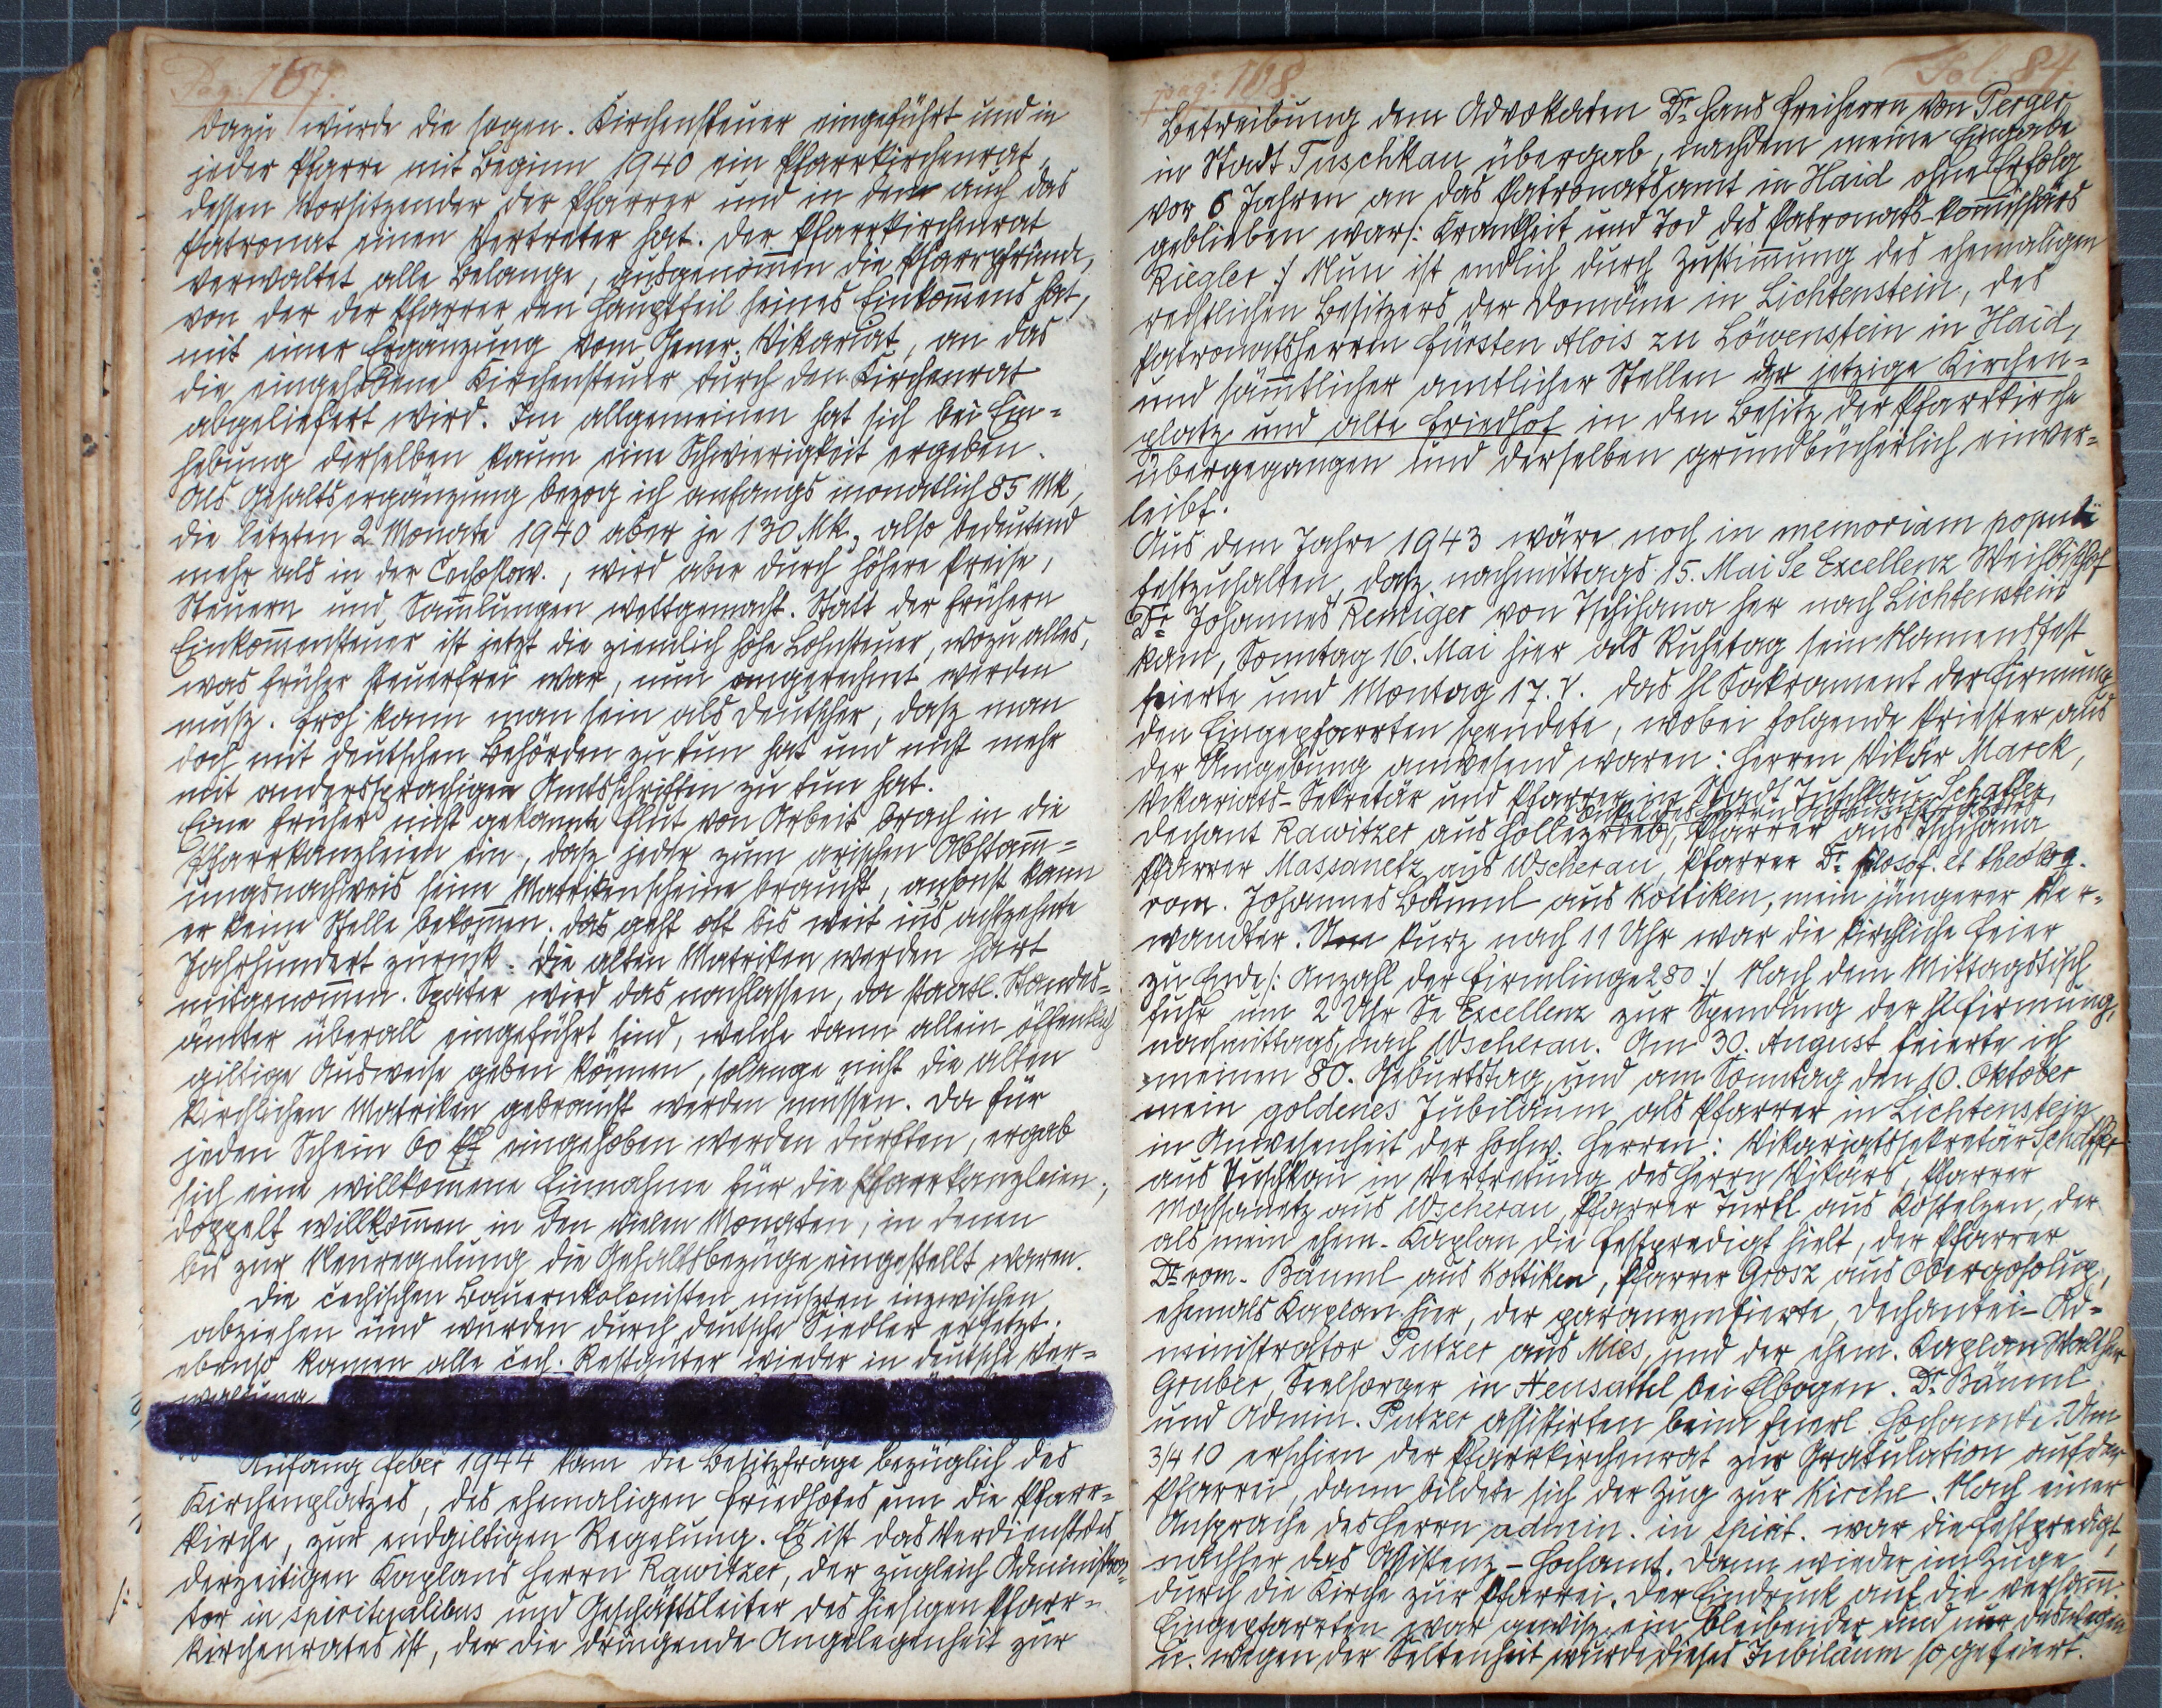 Pag. 167.
dazu wurde die sogen. Kirchensteuer eingeführt und in
jeder Pfarre mit Beginn 1940 ein Pfarrkirchenrat,
dessen Vorsitzender der Pfarrer und in dem auch das
Patronat einen Vertreter hat. Der Pfarrkirchenrat
verwaltet alle Belange, ausgenom̅en die Pfarrpfründe,
von der der Pfarrer den Hauptteil seines Einkom̅ens hat,
mit einer Ergänzung vom Gener. Vikariat, an das
die eingehobene Kirchensteuer durch den Kirchenrat
abgeliefert wird. Im allgemeinen hat sich bei Ein-
hebung derselben kaum eine Schwierigkeit ergeben.
Als Gehaltsergänzung bezog ich anfangs monatlich 85 Mk,
die letzten 2 Monate 1940 aber je 130 Mk, also bedeutend
mehr als in der Čechoslow., wird aber durch höhere Preise,
Steuern und Sam̅lungen wettgemacht. Statt der frühern
Einkom̅ensteuer ist jetzt die ziemlich hohe Lohnsteuer, wozu alles,
was früher steuerfrei war, nun angerechnet werden
musz. Froh kann man sein als Deutscher, dasz man
doch mit deutschen Behörden zu tun hat und nicht mehr
mit anderssprachigen Amtsschriften zu tun hat.
Eine früher nicht gekannte Flut von Arbeit brach in die
Pfarrkanzleien ein, dasz jeder zum arischen Abstam̅-
ungsnachweis seine Matrikenscheine braucht, ansonst kann
er keine Stelle bekom̅en; das geht oft bis weit ins achtzehnte
Jahrhundert zurück. Die alten Matriken werden hart
mitgenom̅en. Später wird das nachlassen, da staatl. Standes-
ämter überall eingeführt sind, welche dann allein öffentlich
giltige Ausweise geben können, solange nicht die alten
kirchlichen Matriken gebraucht werden müssen. Da für
jeden Schein 60 Pf eingehoben werden durften, ergab
sich eine willkom̅ene Einnahme für die Pfarrkanzleien;
doppelt willkom̅en in den vielen Monaten, in denen
bis zur Neuregelung die Gehaltsbezüge eingestellt waren.
Die čechischen Bauernkolonisten muszten inzwischen
abziehen und wurden durch deutsche Siedler ersetzt;
ebenso kamen alle čech. Restgüter wieder in deutsche Ver-
waltung
Anfang Feber 1944 kam die Besitzfrage bezüglich des
Kirchenplatzes, des ehemaligen Friedhofes um die Pfarr-
kirche, zur endgiltigen Regelung. Es ist das Verdienst des
derzeitigen Kaplans Herrn Rawitzer, der zugleich Administra-
tor in spiritualibus und Geschäftsleiter des hiesigen Pfarr-
kirchenrates ist, der die dringende Angelegenheit zur
pag: 168.
Fol. 84.
Betreibung dem Advokaten Dr. Hans Freiherrn von Perger
in Stadt Tuschkau übergab, nachdem meine Eingabe
vor 6 Jahren an das Patronatsamt in Haid ohne Erfolg
geblieben war /: Krankheit und Tod des Patronats-Kom̅issärs
Riegler :/ Nun ist endlich durch Zustim̅ung des ehemaligen
rechtlichen Besitzers der Domäne in Lichtenstein, des
Patronatsherren Fürsten Alois zu Löwenstein in Haid,
und säm̅tlicher amtlicher Stellen der jetzige Kirchen-
platz und alte Friedhof in den Besitz der Pfarrkirche
übergegangen und derselben grundbücherlich einver-
leibt.
Aus dem Jahre 1943 wäre noch in memoriam populi
festzuhalten, dasz nachmittags 15. Mai Se Excellenz Weihbischof
Dr Johannes Remiger von Tschihana her nach Lichtenstein
kam, Sonntag 16. Mai hier als Ruhetag sein Namensfest
feierte und Montag 17. V. das hl Sakrament der Firmung
den Eingepfarrten spendete, wobei folgende Priester aus
der Umgebung anwesend waren: Herren Vikär Marek,
Vikariats-Sekretär und Pfarrer in Stadt Tuschkau Schaffer,
Dechant Rawitzer aus Hollezrieb, Pfarrer aus Tschihana
Pfarrer Massanetz aus Wscherau, Pfarrer Dr. filosof. et theolog.
rom. Johannes Bäuml aus Kottiken, mein jüngerer Ver-
wandter. kurz nach 11 Uhr war die kirchliche Feier
zu Ende /: Anzahl der Firmlinge 280 :/ Nach dem Mittagstisch
fuhr um 2 Uhr Se Excellenz zur Spendung der hl Firmung
nachmittags nach Wscherau. Am 30. August feierte ich
meinen 80. Geburtstag, und am Sonntag den 10. Oktober
mein goldenes Jubiläum als Pfarrer in Lichtenstein
in Anwesenheit der hochw. Herren: Vikariatssekretär Schaffer
aus Tuschkau in Vertretung des Herrn Vikärs, Pfarrer
Massanetz aus Wscherau, Pfarrer Turtl aus Kostelzen, der
als mein ehem. Kaplan die Festpredigt hielt, der Pfarrer
Dr rom. Bäuml aus Kottiken, Pfarrer Grosz aus Obergosolup,
ehemals Kaplan hier, der paranymfierte, Dechantei-Ad-
ministrator Putzer aus Mies, und der ehem. Kaplan Walther
Gruber, Seelsorger in Neusattel bei Elbogen. Dr. Bäuml
und Admin. Putzer assistirten beim feierl. Hochamte. Um
3/4 10 erschien der Pfarrkirchenrat zur Gratulation auf der
Pfarrei, dann bildete sich der Zug zur Kirche. Nach einer
Ansprache des Herrn admin. in spirit. war die Festpredigt,
nachher das Assistenz-Hochamt. Dann wieder im Zuge
durch die Kirche zur Pfarrei. Der Eindruck auf die versam̅.
Eingepfarrten war gewisz ein bleibender und nur deswegen
u. wegen der Seltenheit wurde dieses Jubiläum so gefeiert.